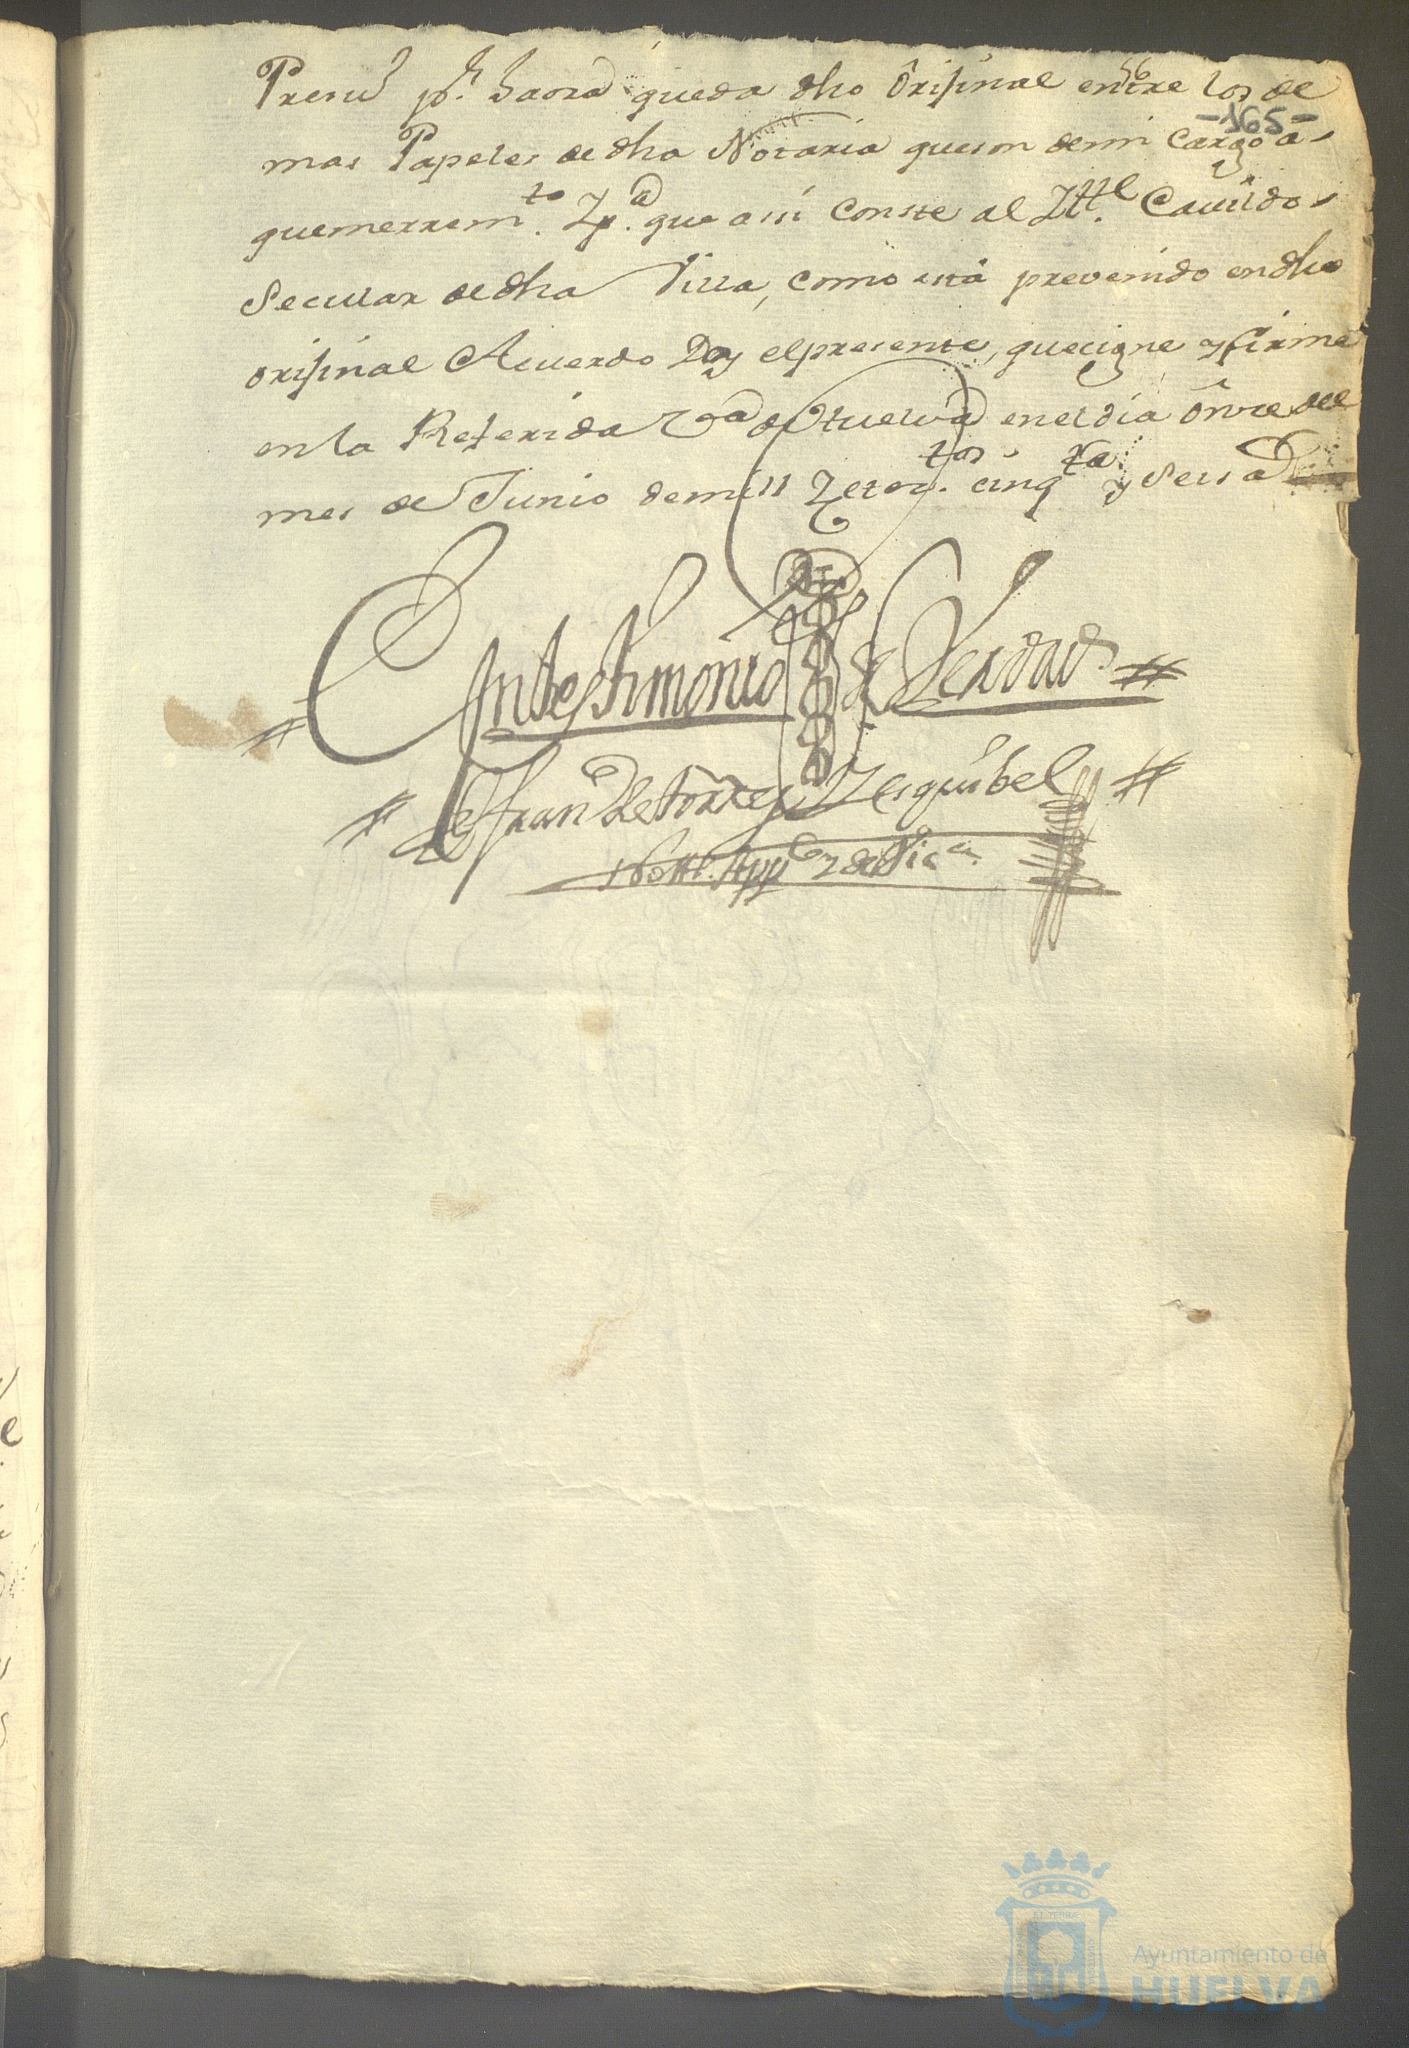 queda dho Orijinal entre los de
-165-
mas Papeles de dha Notaria que son de mi Cargo a
que me rrem.to Y p.a que assi Conste al Ill.e Cavildo
Secular de dha Villa, como está prevenido en dho
orijinal Acuerdo Doy el presente, que cigne y firme
en la Referida V.a de Huelva en el dia Onze del
mes de Junio de mill Zetez.tos cinq.ta y Seis a.
En testimonio de Verdad
Fran.co de torres Y esquibel
Nott. App.co
Ayuntamiento de
HUELVA